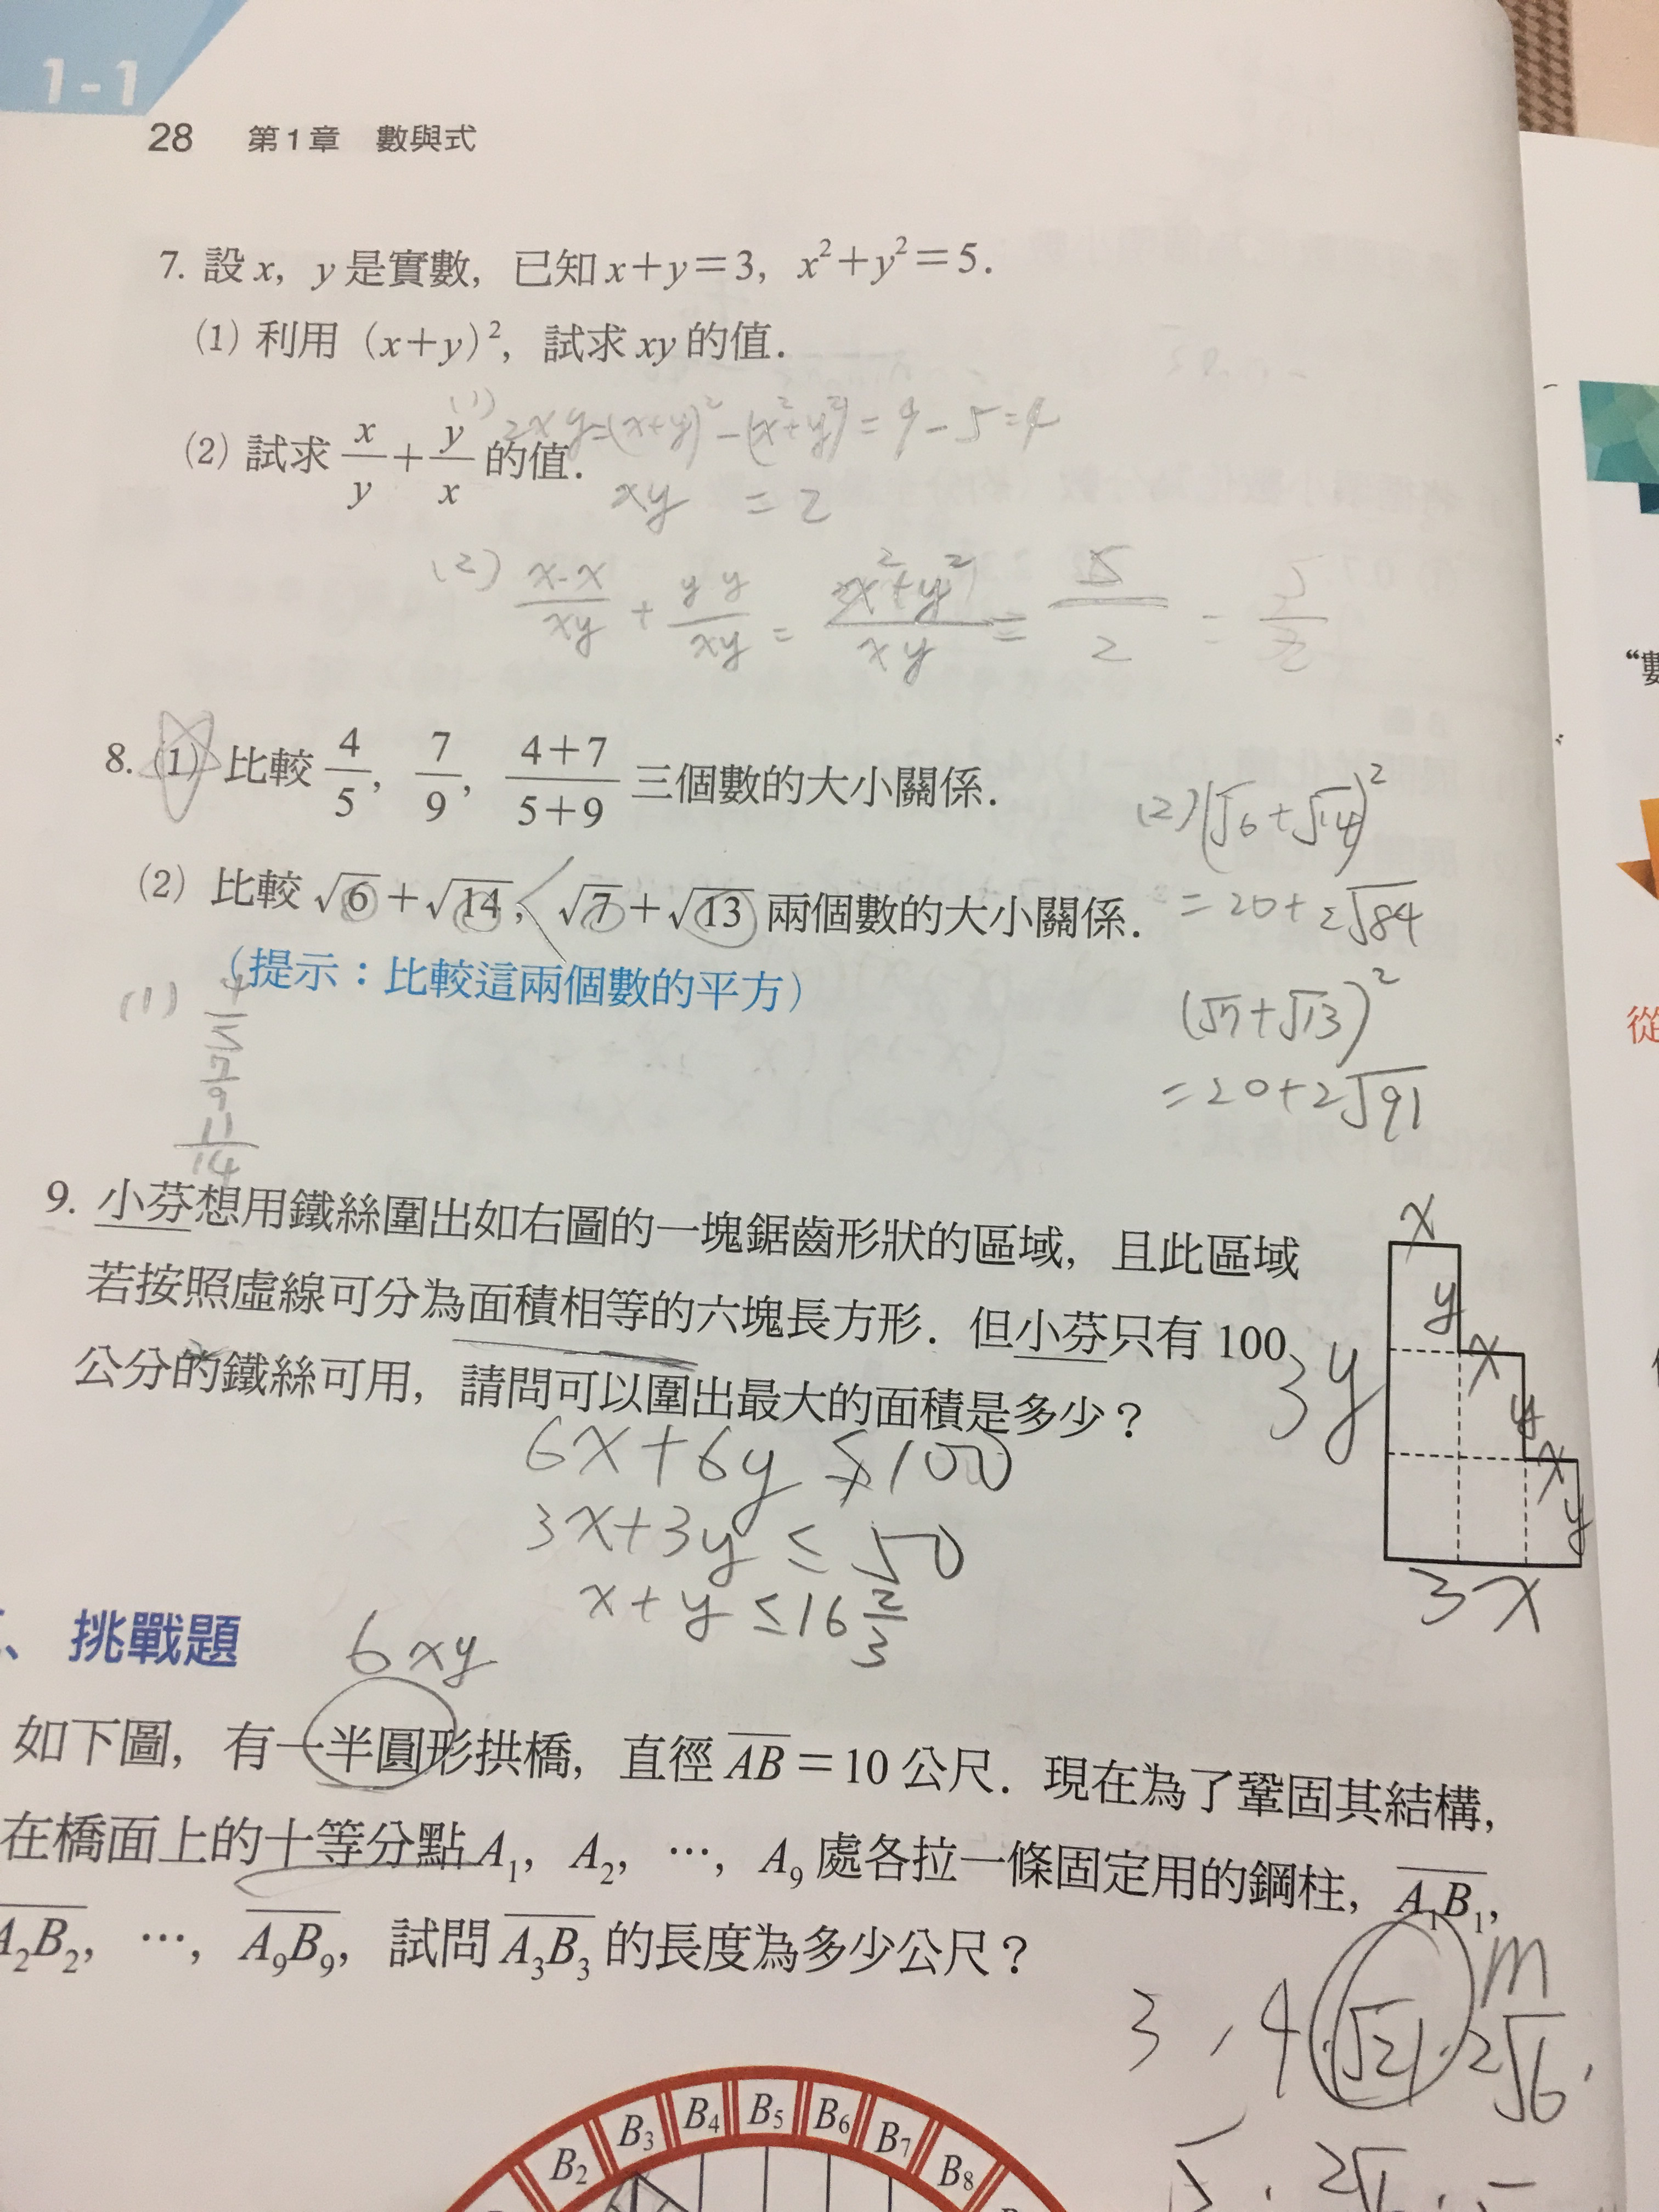 1-1
28 第1章 數與式
7. 設 x, y 是實數, 已知 x+y=3, x²+y²=5.
(1) 利用 (x+y)², 試求 xy 的值.
(2) 試求 x/y + y/x 的值.
(1) 2xy=(x+y)²-(x²+y²)=9-5=4
xy = 2
(2) x·x/xy + y y/xy = x²+y²/xy = 5/2 = 5/2
8. (1) 比較 4/5, 7/9, 4+7/5+9 三個數的大小關係.
(2) 比較 √6+√14, < √7+√13 兩個數的大小關係.
(提示:比較這兩個數的平方)
(2) (√6+√14)²
= 20+2√84
(√7+√13)²
= 20+2√91
(1) 4/5
7/9
11/14
9. 小芬想用鐵絲圍出如右圖的一塊鋸齒形狀的區域, 且此區域
若按照虛線可分為面積相等的六塊長方形. 但小芬只有 100
公分的鐵絲可用, 請問可以圍出最大的面積是多少?
x
y
x
3y
y
x
y
3x
6x+6y ≤ 100
3x+3y ≤ 50
x+y ≤ 16 2/3
6xy
、挑戰題
如下圖, 有一半圓形拱橋, 直徑 AB=10 公尺. 現在為了鞏固其結構,
在橋面上的十等分點 A₁, A₂, …, A₉ 處各拉一條固定用的鋼柱, A₁B₁,
A₂B₂, …, A₉B₉, 試問 A₃B₃ 的長度為多少公尺?
3, 4, √21, 2√6,
m
B₂ B₃ B₄ B₅ B₆ B₇ B₈
“數
從